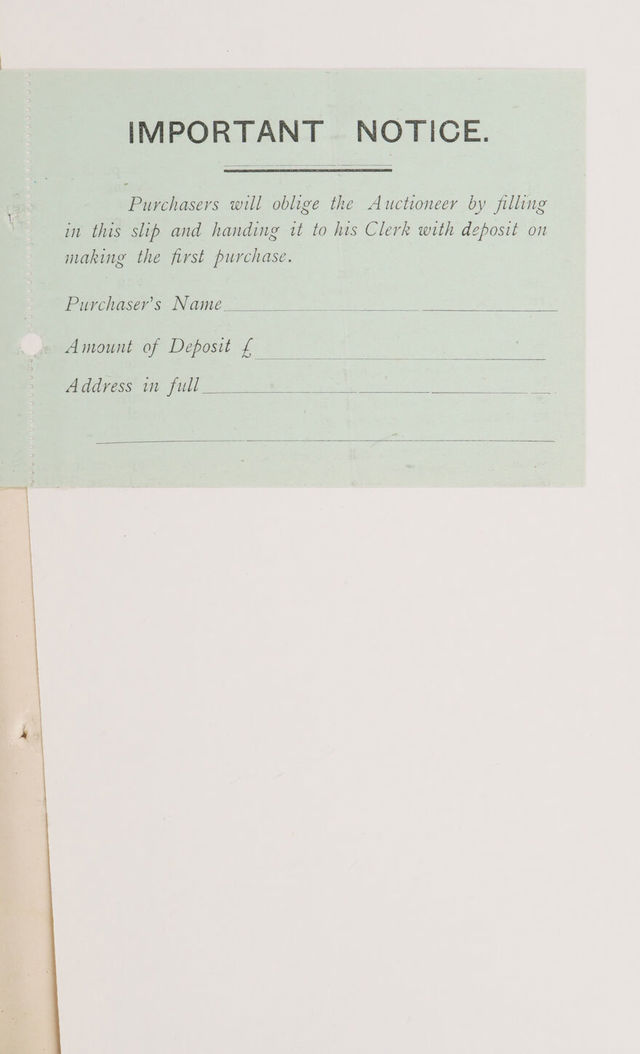 IMPORTANT NOTICE.
Purchasers will oblige the Auctioneer by filling
in this slip and handing it to his Clerk with deposit on
making the first purchase.
Purchaser's Name
Amount of Deposit £
Address in full